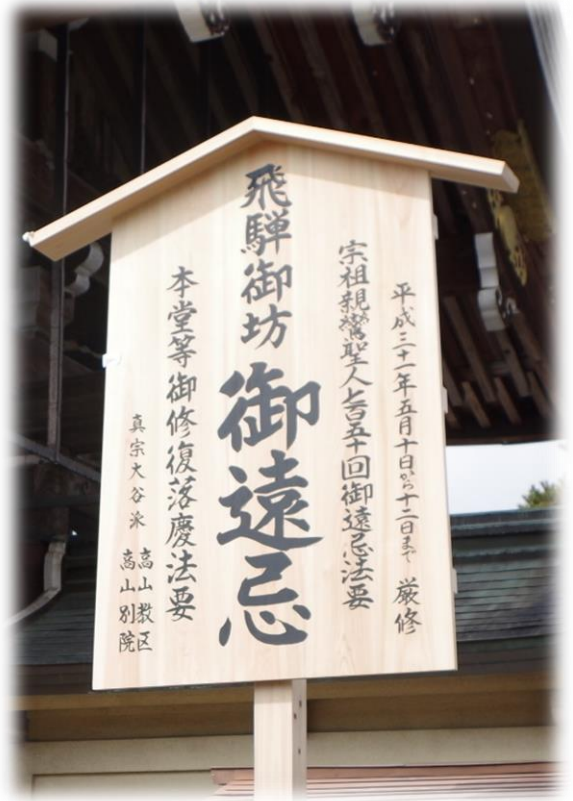 平成三十一年五月十日から十二日まで 厳修
宗祖親鸞聖人七百五十回御遠忌法要
飛騨御坊 御遠忌
本堂等御修復落慶法要
真宗大谷派 高山教区
高山別院